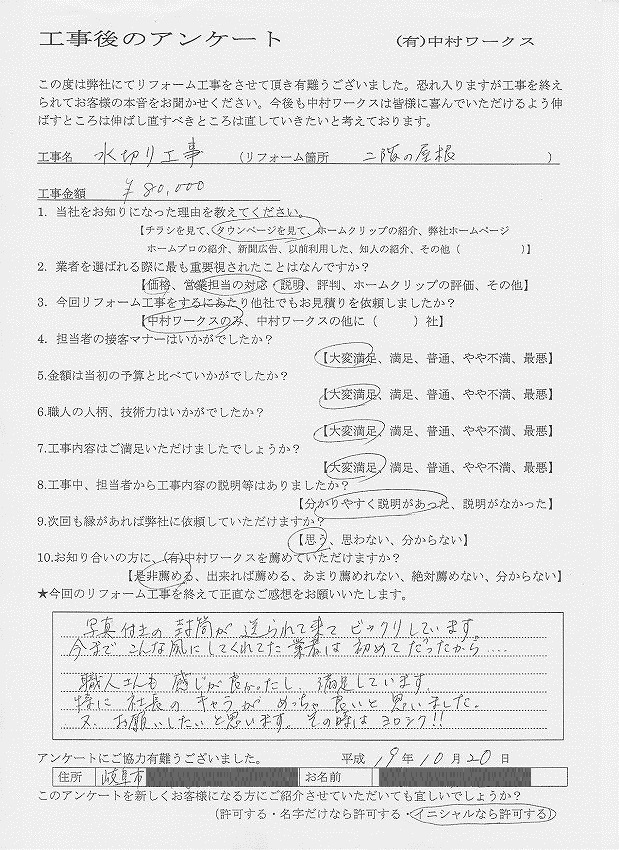 工事後のアンケート (有)中村ワークス
この度は弊社にてリフォーム工事をさせて頂き有難うございました。恐れ入りますが工事を終え
られてお客様の本音をお聞かせください。今後も中村ワークスは皆様に喜んでいただけるよう伸
ばすところは伸ばし直すべきところは直していきたいと考えております。
工事名 水切り工事 (リフォーム箇所 二階の屋根 )
工事金額 ¥80,000
1. 当社をお知りになった理由を教えてください。
【チラシを見て、タウンページを見て、ホームクリップの紹介、弊社ホームページ
ホームプロの紹介、新聞広告、以前利用した、知人の紹介、その他( )】
2. 業者を選ばれる際に最も重要視されたことはなんですか?
【価格、営業担当の対応・説明、評判、ホームクリップの評価、その他】
3. 今回リフォーム工事をするにあたり他社でもお見積りを依頼しましたか?
【中村ワークスのみ、中村ワークスの他に( )社】
4. 担当者の接客マナーはいかがでしたか?
【大変満足、満足、普通、やや不満、最悪】
5.金額は当初の予算と比べていかがでしたか?
【大変満足、満足、普通、やや不満、最悪】
6.職人の人柄、技術力はいかがでしたか?
【大変満足、満足、普通、やや不満、最悪】
7.工事内容はご満足いただけましたでしょうか?
【大変満足、満足、普通、やや不満、最悪】
8.工事中、担当者から工事内容の説明等はありましたか?
【分かりやすく説明があった、説明がなかった】
9.次回も縁があれば弊社に依頼していただけますか?
【思う、思わない、分からない】
10.お知り合いの方に、(有)中村ワークスを薦めていただけますか?
【是非薦める、出来れば薦める、あまり薦めれない、絶対薦めない、分からない】
★今回のリフォーム工事を終えて正直なご感想をお願いいたします。
写真付きの封筒が送られて来てビックリしています。
今までこんな風にしてくれてた業者は初めてだったから....
職人さんも感じが良かったし、満足しています。
特に社長のキャラがめっちゃ良いと思いました。
又、お願いしたいと思います。その時はヨロシク!!
アンケートにご協力有難うございました。 平成 19年10月20日
住所 岐阜市 お名前
このアンケートを新しくお客様になる方にご紹介させていただいても宜しいでしょうか?
(許可する・名字だけなら許可する・イニシャルなら許可する)